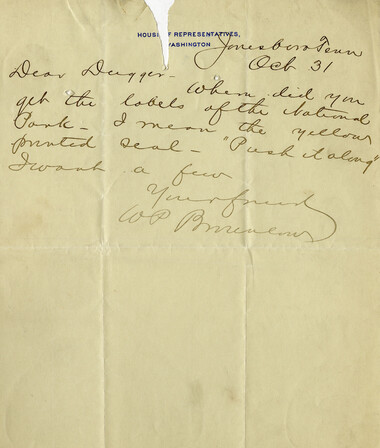 HOUSE OF REPRESENTATIVES,
WASHINGTON
Jonesboro Tenn
Oct 31
Dear Dugger -
Where did you
get the labels of the National
Park - I mean the yellow
printed seal - "Push it along"
I want a few
Your friend
W P Brownlow